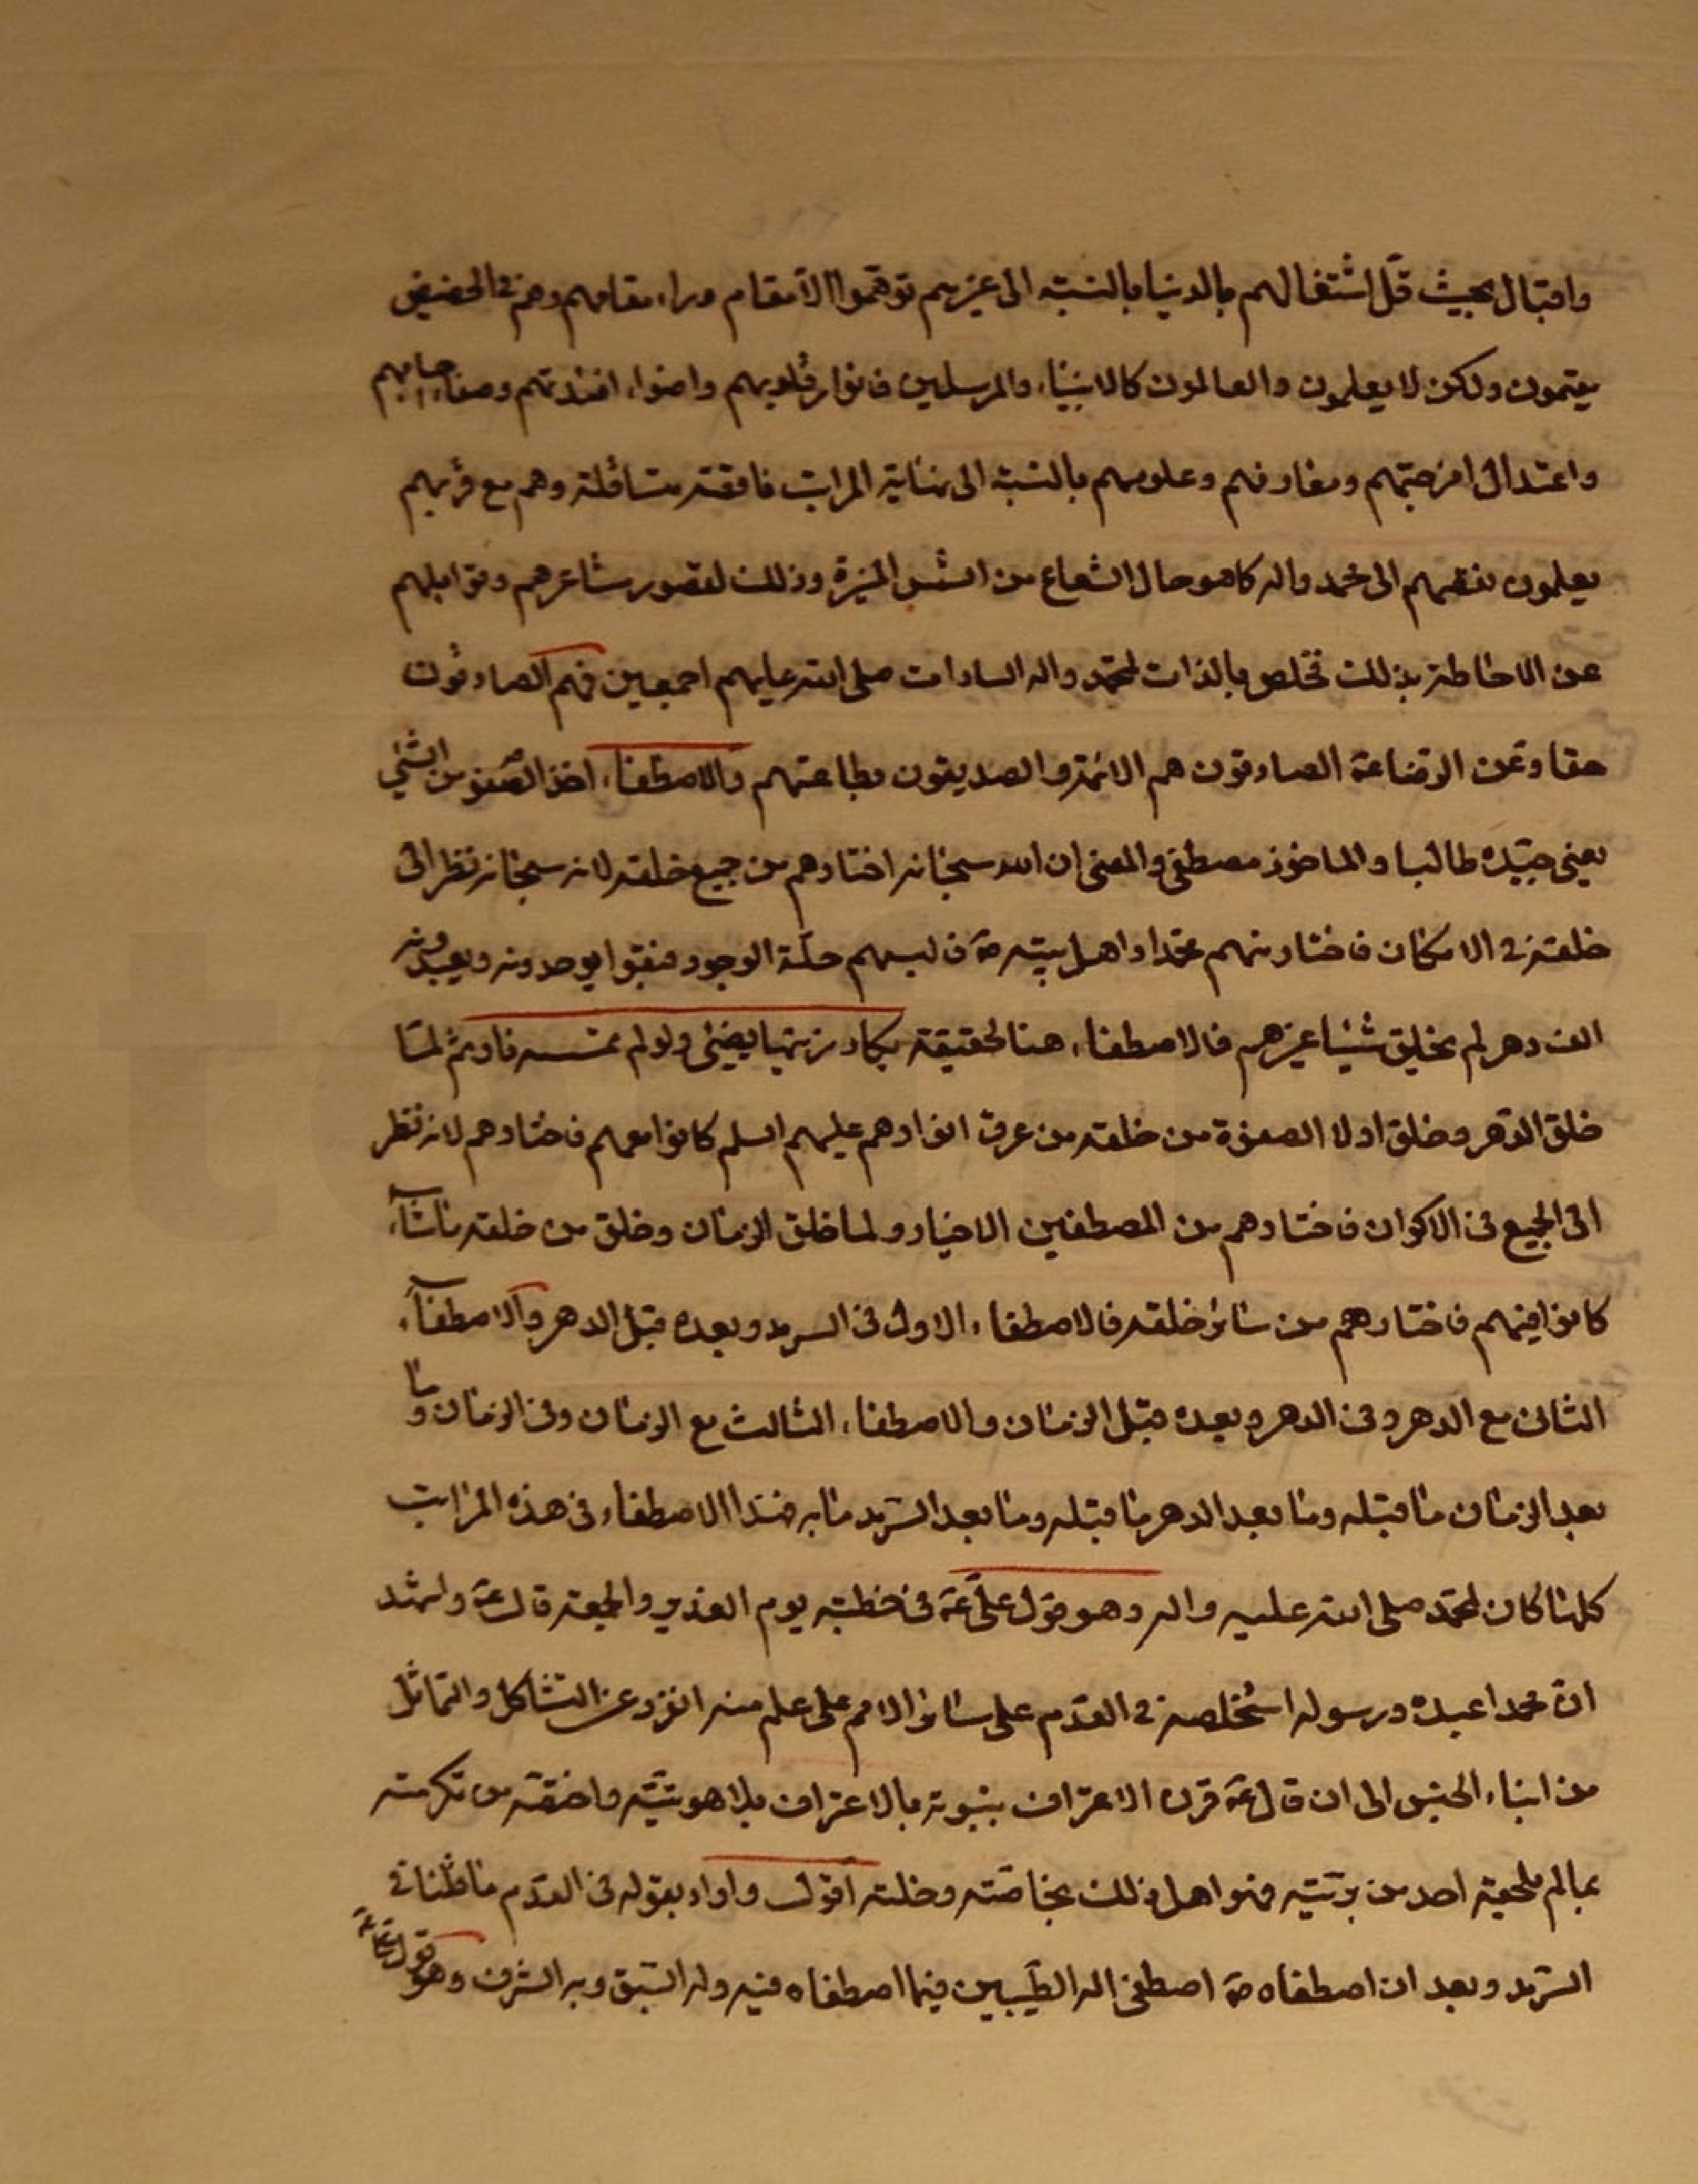 واقبال بحيث قلّ اشتغالهم بالدنيا بالنسبة الى غيرهم توهّموا الّا مقام وراء مقامهم وهم في الحضيض
يعتمون ولكن لا يعلمون والعالمون كالانبياء والمرسلين فانوار قلوبهم واضواء افئدتهم وصفاء
واعتدال امزجتهم ومعارفهم وعلومهم بالنسبة الى نهاية المراتب فاقته متسافلة وهم مع قربهم
يعلمون نقصهم الى محمد واله كما هو حال الشعاع من الشمس المنيرة وذلك لقصور مشاعرهم وقوابلهم
عن الاحاطة بذلك تخلص بالذات لمحمّد واله السادات صلى الله عليهم اجمعين فهم الصادقون
حقا وعن الرضا عة الصادقون هم الائمة والصديقون بطاعتهم والاصطفاء اخذ الصّفو من الشئي
يعني جيّده طالبا والماخوذ مصطفى والمعنى ان الله سبحانه اختارهم من جميع خلقه لانه سبحانه نظر الى
خلقه في الامكان فاختار منهم محمّدا واهل بيته صۤ فالبسهم حلّة الوجود فبقوا يوحدونه ويعبدونه
الف دهر لم يخلق شيئا غيرهم فالاصطفاء هنا لحقيقة يكاد زيتها يضئى ولو لم تمسسه نار ثم لمّا
خلق الدّهر وخلق اولا الصفوة من خلقه من عرق انوارهم عليهم السلم كانوا معهم فاختارهم لانه نظر
الى الجميع في الاكوان فاختارهم من المصطفين الاخيار ولما خلق الزمان وخلق من خلقه ما شاۤء
كانوا فيهم فاختارهم من سائر خلقه فالاصطفاء الاول في السرمد وبعده قبل الدهر والاصطفاۤء
الثاني مع الدهر وفي الدهر وبعده قبل الزمان والاصطفاء الثالث مع الزمان وفي الزمان وما
بعد الزمان ما قبله وما بعد الدهر ما قبله وما بعد السّرمد ما به فهذا الاصطفاء في هذه المراتب
كلها كان لمحمّد صلى الله عليه واله وهو قول علىّ عۤ في خطبته يوم الغدير والجمعة قال عۤ واشهد
انّ محمدا عبده ورسوله استخلصه في القدم على سائر الامم على علم منه انفرد عن التشاكل والتماثل
من ابناء الجنس الى ان قال عۤ قرن الاعتراف بنبوته بالاعتراف بلاهوتيّته واختصّه من تكرمته
بما لم يلحقه احد من بريّته فهو اهل ذلك بخاصّته وخلته اقول واراد بقوله في القدم ما قلنا في
السّرمد وبعد ان اصطفاه صۤ اصطفى اله الطّيّبين فيما اصطفاه فيه وله السّبق وبه الشرف وهو قول